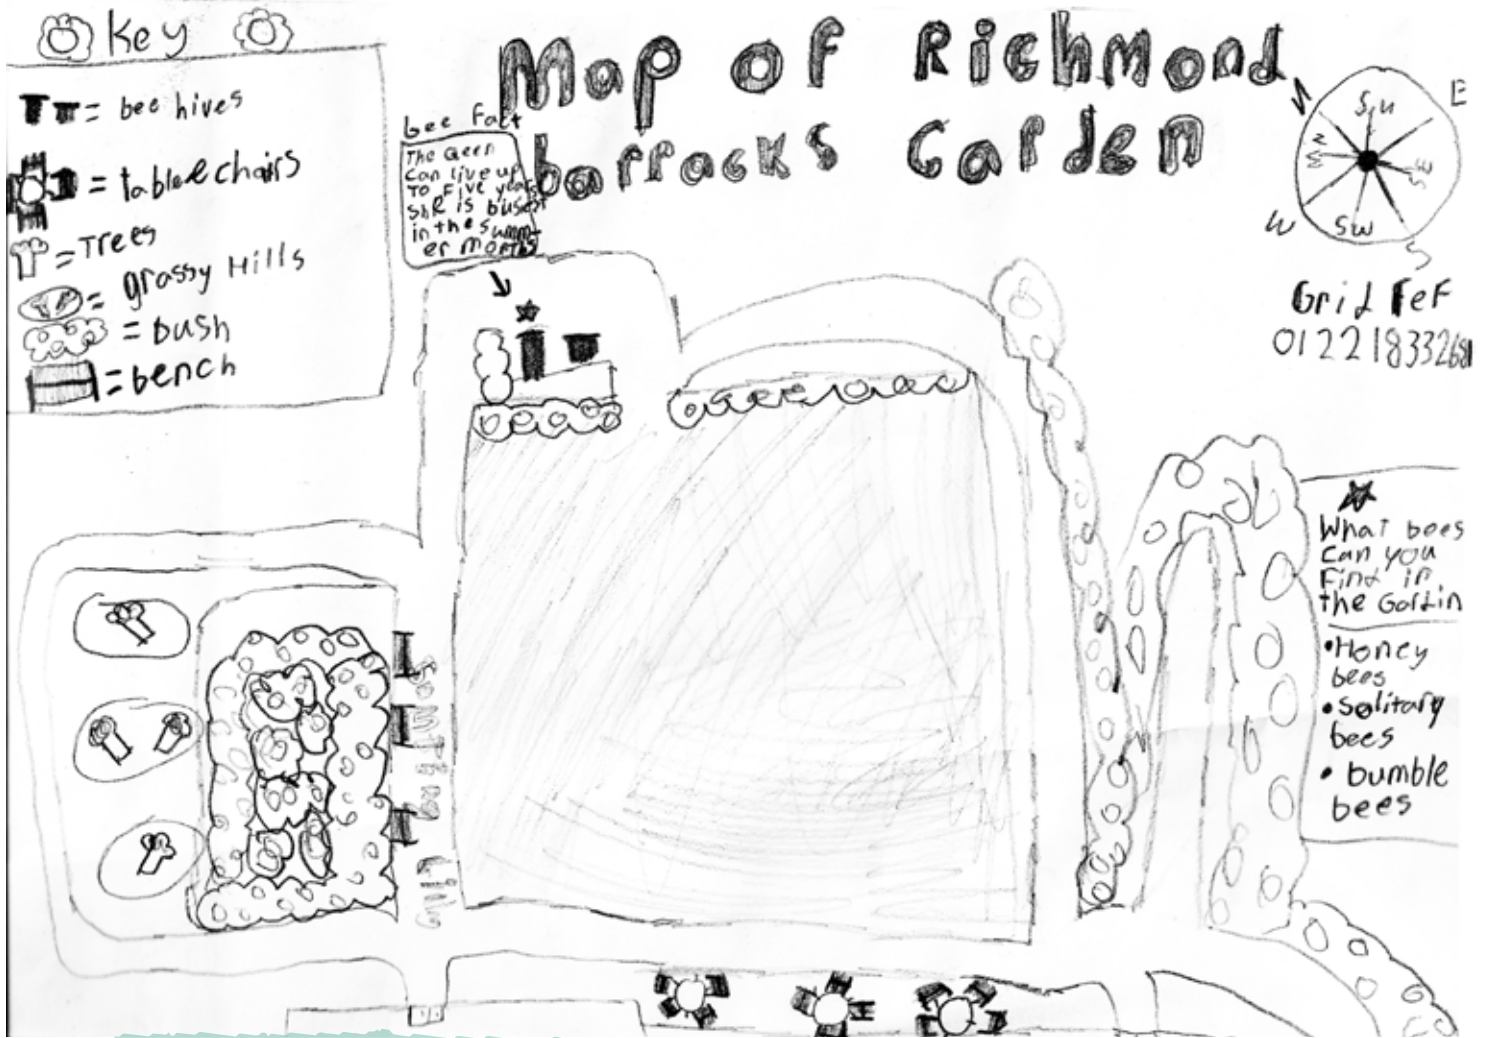 Key
= bee hives
= table & chairs
= Trees
= grassy Hills
= bush
= bench
Map of Richmond
barracks Garden
bee Fact
The Qeen
can live up
To Five years
ShR is busest
in the summ-
er months
N
E
S
W
SW
SE
Grid reF
What bees
can you
Find in
the Gardin
•Honey
bees
•solitary
bees
• bumble
bees
Lily